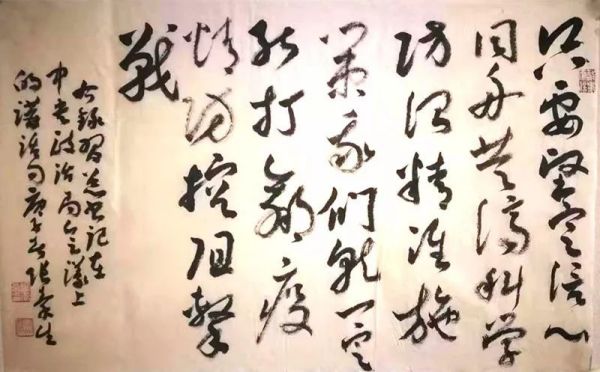 只要坚定信心
同舟共济科学
防治精准施
策我们就一定
能打赢疫
情防控阻擊
戰
右録習总书记在
中央政治局会议上
的讲话句庚子春张生